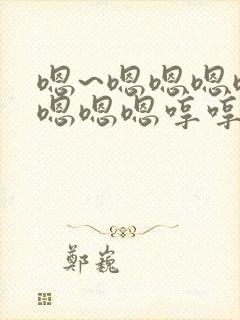 嗯~嗯嗯嗯
嗯嗯嗯哼哼
鄭巍